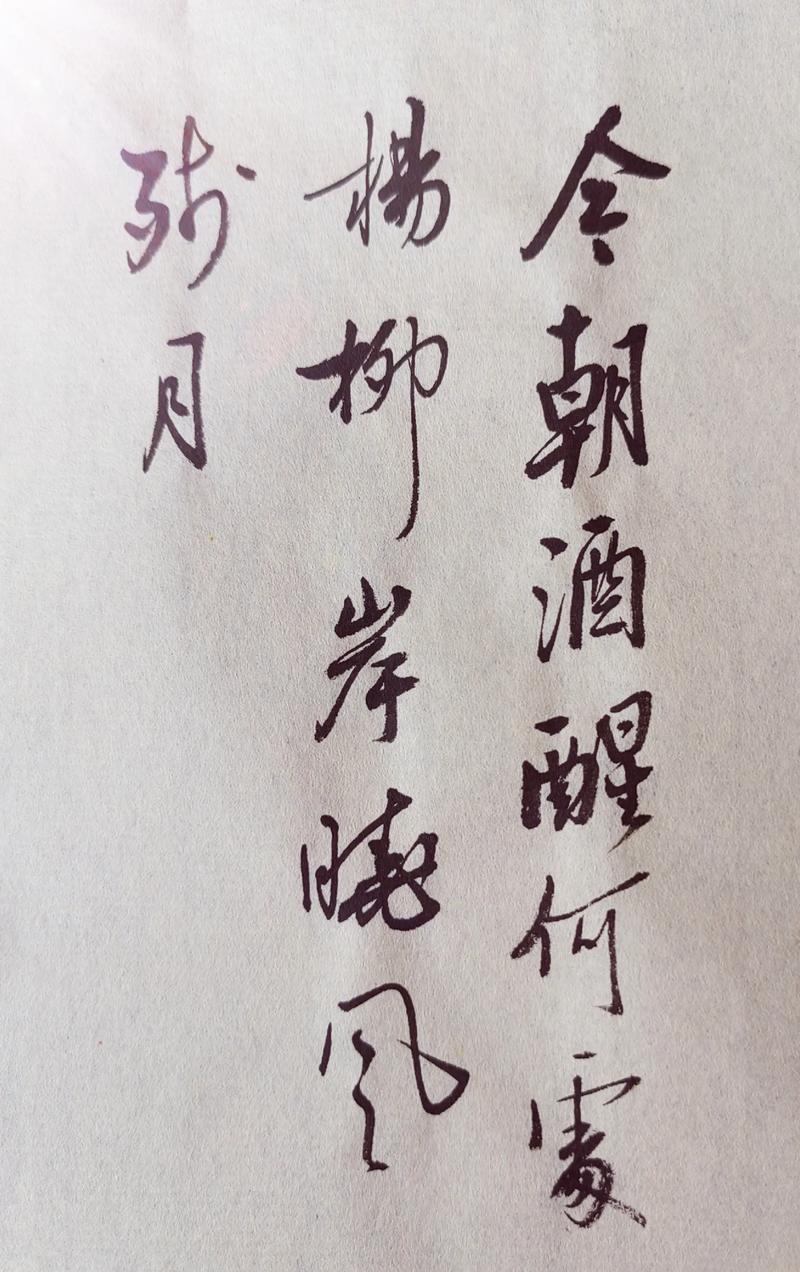 今朝酒醒何處
楊柳岸曉風
殘月